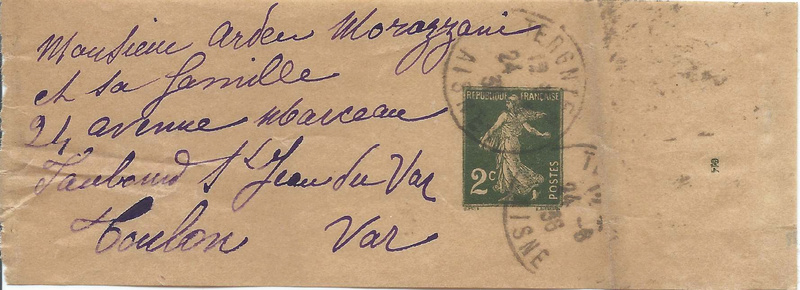 Monsieur Arden Morazzani
et sa famille
24 avenue Marceau
Faubourd St Jean du Var
Toulon Var
TERGNIER
AISNE
24
RÉPUBLIQUE FRANÇAISE
2c
POSTES
24 - 8
36
ISNE